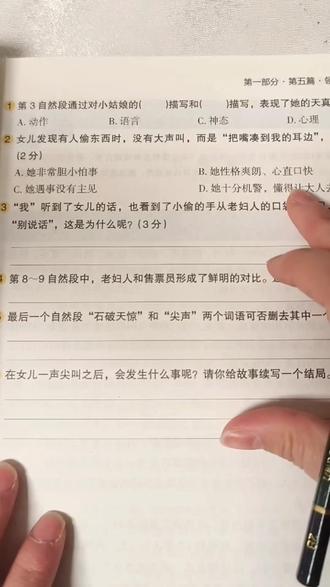 第一部分·第五篇·
1 第3自然段通过对小姑娘的( )描写和( )描写，表现了她的天真
A. 动作 B. 语言 C. 神态 D. 心理
2 女儿发现有人偷东西时，没有大声叫，而是“把嘴凑到我的耳边”，
(2分)
A. 她非常胆小怕事 B. 她性格爽朗、心直口快
C. 她遇事没有主见 D. 她十分机警，懂得让大人
3 “我”听到了女儿的话，也看到了小偷的手从老妇人的口袋
“别说话”，这是为什么呢？(3分)
第8～9自然段中，老妇人和售票员形成了鲜明的对比。
最后一个自然段“石破天惊”和“尖声”两个词语可否删去其中一
在女儿一声尖叫之后，会发生什么事呢？请你给故事续写一个结局。